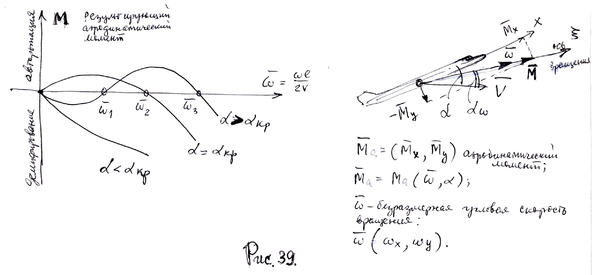 M̄
Результирующий
аэродинамический
момент
авторотация
демпфирование
ω̄ = ωl / 2V
ω̄₁
ω̄₂
ω̄₃
α > αкр
α = αкр
α < αкр
Рис. 39.
M̄x
X
ω̄
ξ
ось
вращения
M̄
V̄
-M̄y
α
αω
M̄a = (M̄x, M̄y) аэродинамический
момент;
M̄a = Ma (ω̄, α);
ω̄ - безразмерная угловая скорость
вращения:
ω̄ (ωx, ωy).